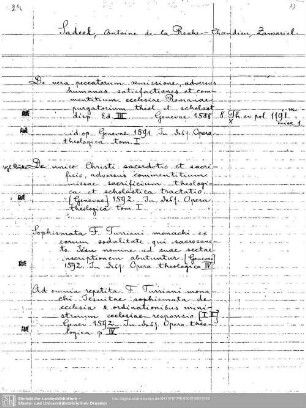 Sadeel, Antoine de la Roche-Chandieu, Zamariel.
De vera peccatorum remissione, adversus
humanas satisfactiones et com-
mentitium ecclesiae Romanae
purgatorium theol. et scholast.
disp. Ed. III Genevae 1588 8. Th. ev. pol. 1191
id. op. Genevae 1591. In Dess. Opera
theologica tom. I
De unico Christi sacerdotio et sacri-
ficio, adversus commentitium
missae sacrificium theologi-
ca et scholastica tractatio
[Genevae] 1592. In Dess. Opera
theologica tom. I.
Sophismata F. Turriani monachi ex
eorum sodalitate qui sacrosanc-
to Jesu nomine ad suae sectae
inscriptionem abutuntur [Genevae]
1592. In Dess. Opera theologica IV
Ad omnia repetita F. Turriani mona-
chi Jesuitae sophismata de
ecclesia et ordinationibus mini-
strorum ecclesiae responsio [I II]
Genev. 1592. In Dess. Opera theo-
logica p. IV